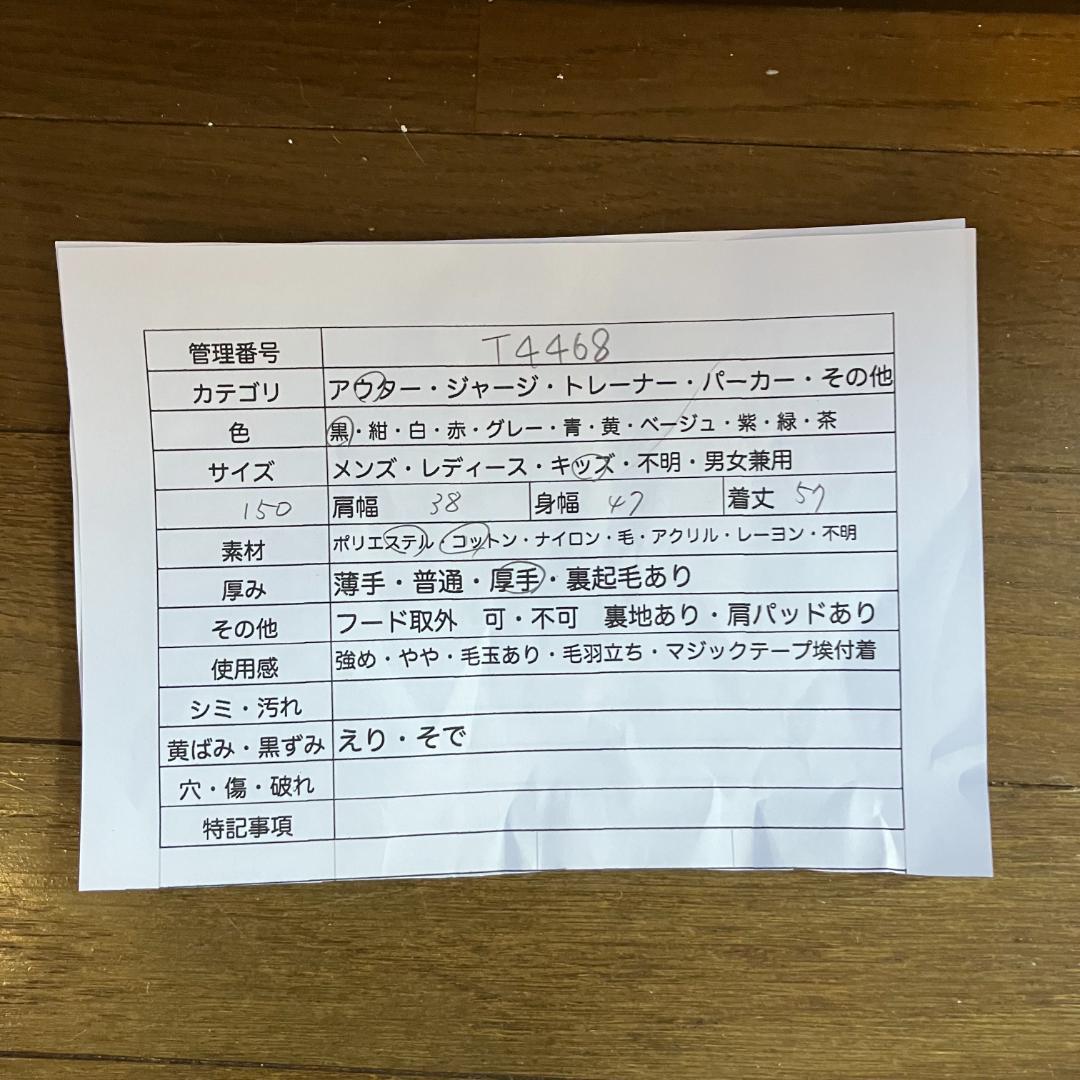 管理番号 T4468
カテゴリ アウター・ジャージ・トレーナー・パーカー・その他
色 黒・紺・白・赤・グレー・青・黄・ベージュ・紫・緑・茶
サイズ メンズ・レディース・キッズ・不明・男女兼用
150 肩幅 38 身幅 47 着丈 57
素材 ポリエステル・コットン・ナイロン・毛・アクリル・レーヨン・不明
厚み 薄手・普通・厚手・裏起毛あり
その他 フード取外 可・不可 裏地あり・肩パッドあり
使用感 強め・やや・毛玉あり・毛羽立ち・マジックテープ埃付着
シミ・汚れ
黄ばみ・黒ずみ えり・そで
穴・傷・破れ
特記事項